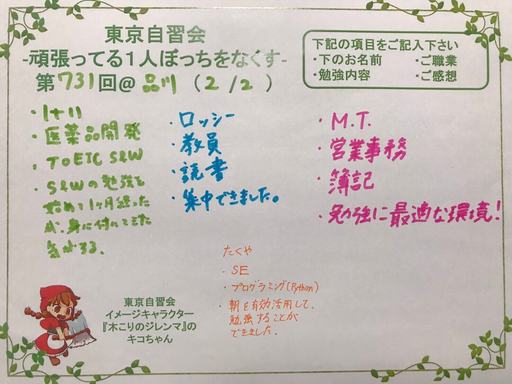 東京自習会
-頑張ってる1人ぼっちをなくす-
第731回@ 品川 (2/2)
下記の項目をご記入下さい
・下のお名前 ・ご職業
・勉強内容 ・ご感想
・医薬品開発
・TOEIC S&W
・S&Wの勉強を
始めて1ヶ月経った
が、身に付いてきた
気がする。
・ロッシー
・教員
・読書
・集中できました。
・M.T.
・営業事務
・簿記
・勉強に最適な環境!
たくや
・SE
・プログラミング(Python)
・朝を有効活用して、
勉強することが
できました。
東京自習会
イメージキャラクター
『木こりのジレンマ』の
キコちゃん